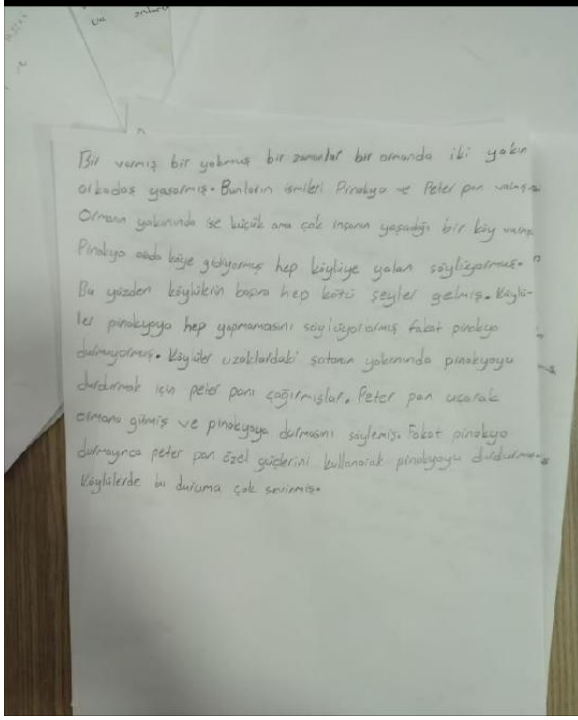 Bir varmış bir yokmuş bir zamanlar bir ormanda iki yakın
arkadaş yaşarmış. Bunların isimleri Pinokyo ve Peter pan varmış
Ormanın yakınında ise küçük ama çok insanın yaşadığı bir köy varmış
Pinokyo arada köye gidiyormuş hep köylüye yalan söylüyormuş.
Bu yüzden köylülerin başına hep kötü şeyler gelmiş. Köylü-
ler pinokyoya hep yapmamasını söylüyorlarmış fakat pinokyo
durmuyormuş. Köylüler uzaklardaki şatonun yakınında pinokyoyu
durdurmak için peter panı çağırmışlar. Peter pan uçarak
ormana gitmiş ve pinokyoya durmasını söylemiş. Fakat pinokyo
durmayınca peter pan özel güçlerini kullanarak pinokyoyu
Köylülerde bu duruma çok sevinmiş.